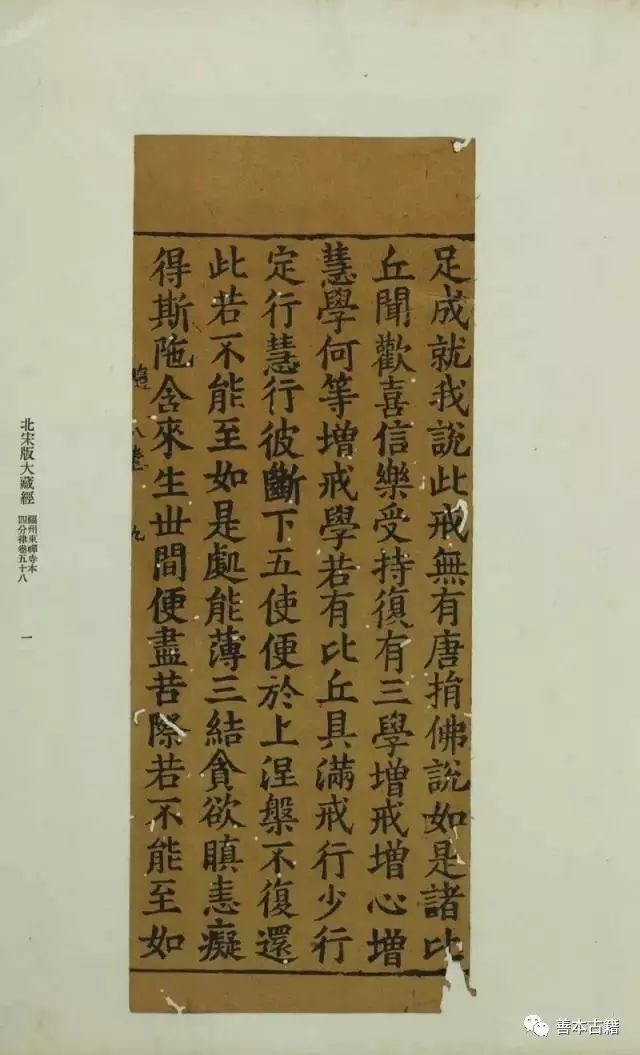 足成就我說此戒無有唐捐佛說如是諸比
丘聞歡喜信樂受持復有三學增戒增心增
慧學何等增戒學若有比丘具滿戒行少行
定行慧行彼斷下五使便於上涅槃不復還
此若不能至如是處能薄三結貪欲瞋恚癡
得斯陁含來生世間便盡苦際若不能至如
八 九
北宋版大藏經
福州東禪寺本
四分律卷五十八
一
善本古籍